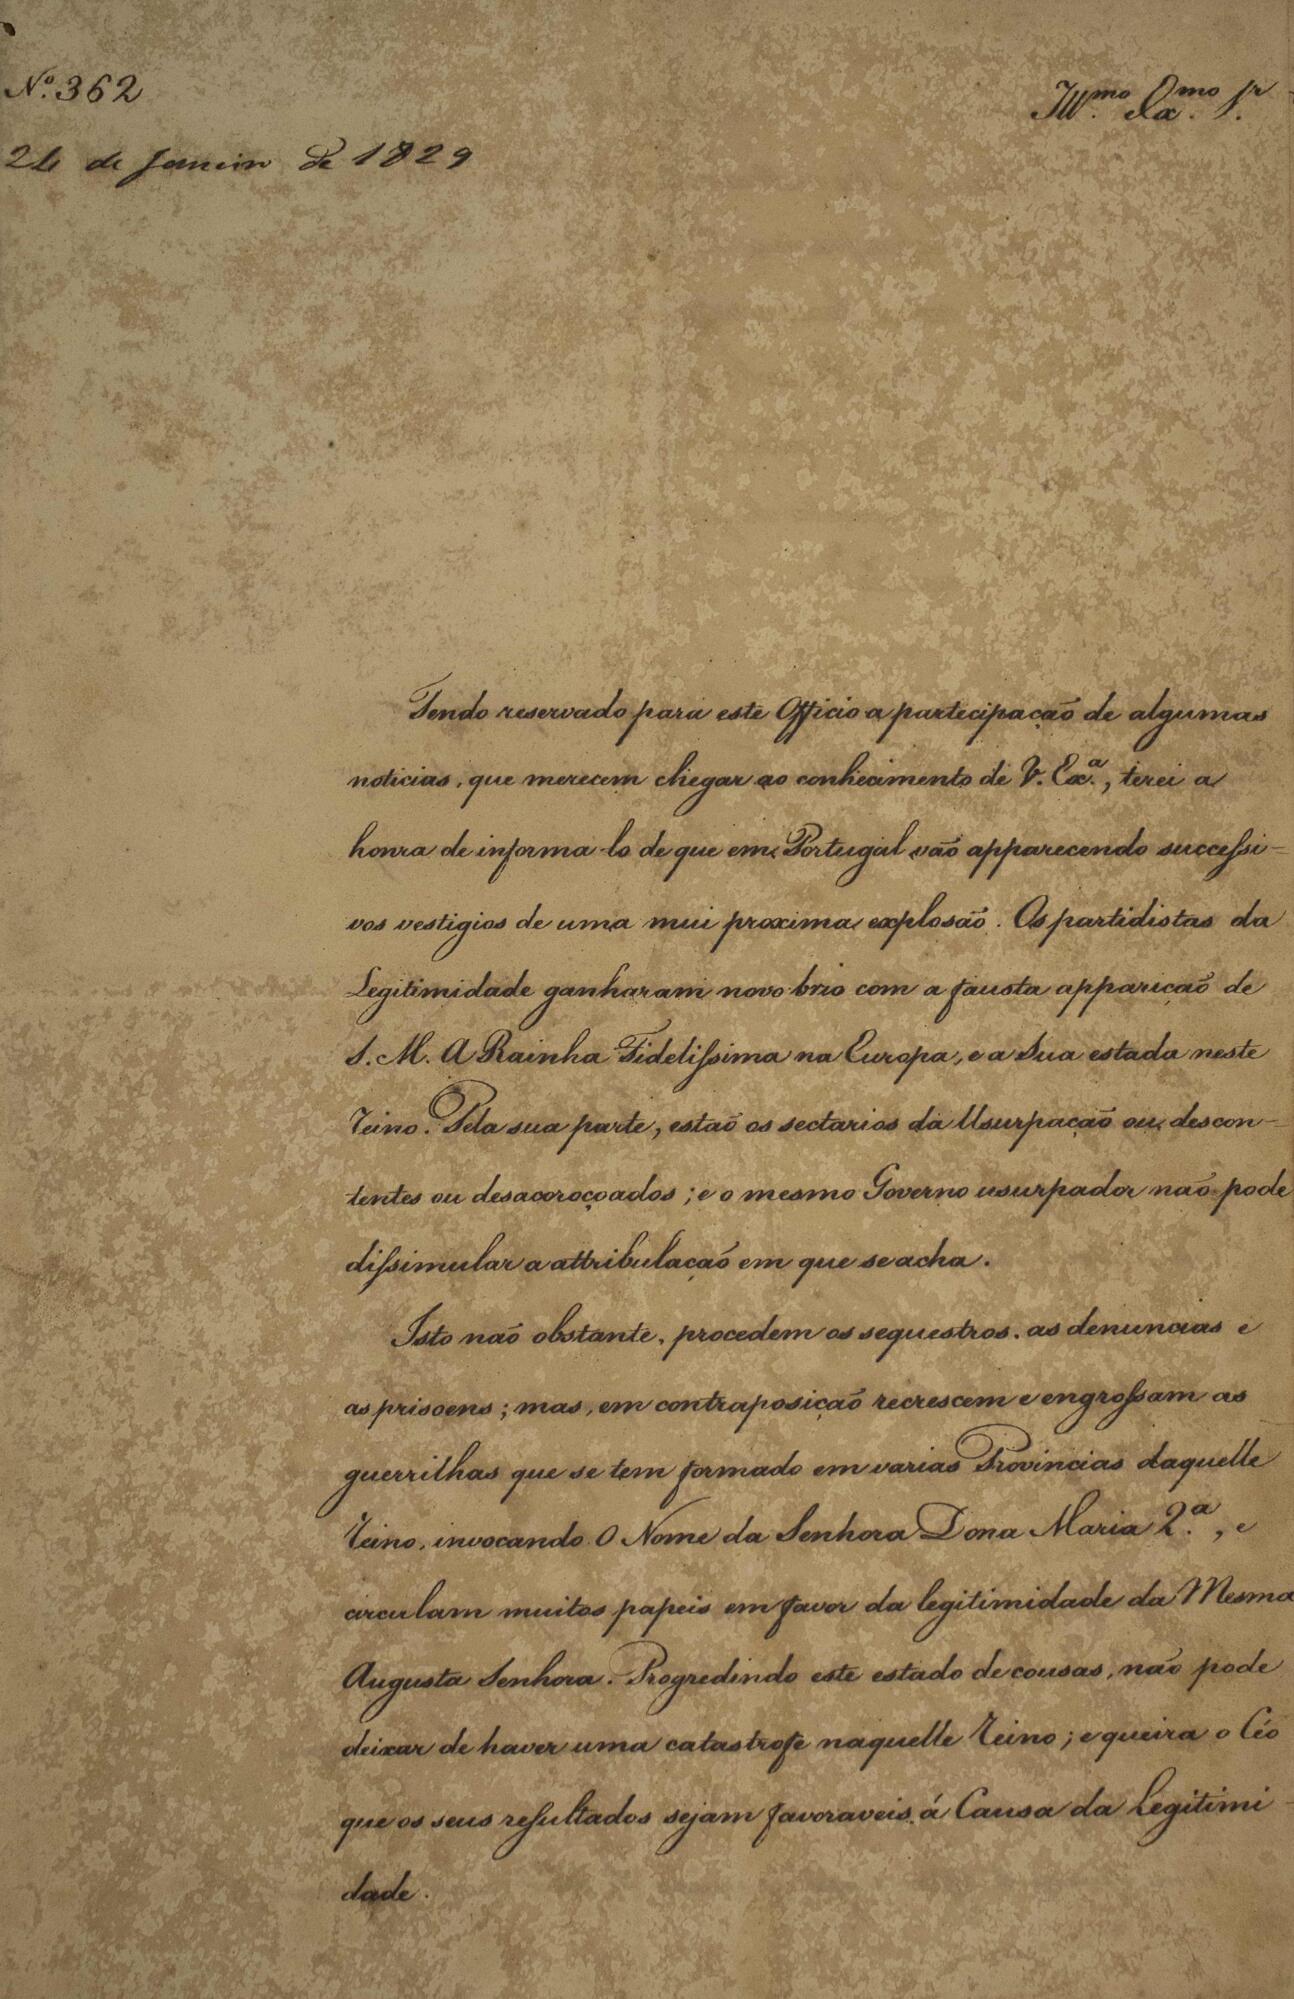 Nº. 362
Illmo. Exmo. Sr.
24 de Janeiro de 1829
Tendo reservado para este Officio a partecipação de algumas
noticias, que merecem chegar ao conhecimento de V. Exª., terei a
honra de informa-lo de que em Portugal vão apparecendo successi-
vos vestigios de uma mui proxima explosão. Os partidistas da
Legitimidade ganharam novo brio com a fausta apparição de
S. M. A Rainha Fidelissima na Europa, e a Sua estada neste
Reino. Pela sua parte, estaõ os sectarios da Usurpaçaõ ou descon-
tentes ou desacoroçoados; e o mesmo Governo usurpador naõ pode
dissimular a attribulaçaõ em que se acha.
Isto naõ obstante, procedem os sequestros, as denuncias e
as prisoens; mas, em contraposiçaõ recrescem e engrossam as
guerrilhas que se tem formado em varias Provincias daquelle
Reino, invocando O Nome da Senhora Dona Maria 2.ª, e
circulam muitos papeis em favor da legitimidade da Mesma
Augusta Senhora. Progredindo este estado de cousas, naõ pode
deixar de haver uma catastrofe naquelle Reino; e queira o Céo
que os seus resultados sejam favoraveis á Causa da Legitimi-
dade.